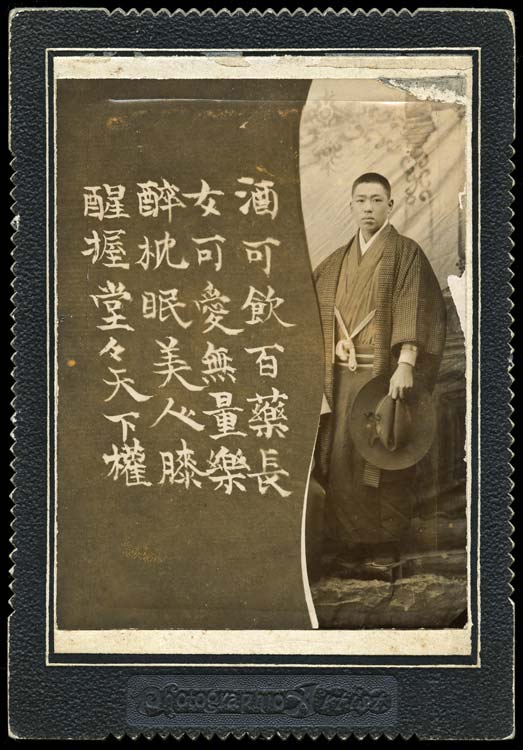 酒可飲百藥長
女可愛無量樂
醉枕眠美人膝
醒握堂々天下權
Photographic